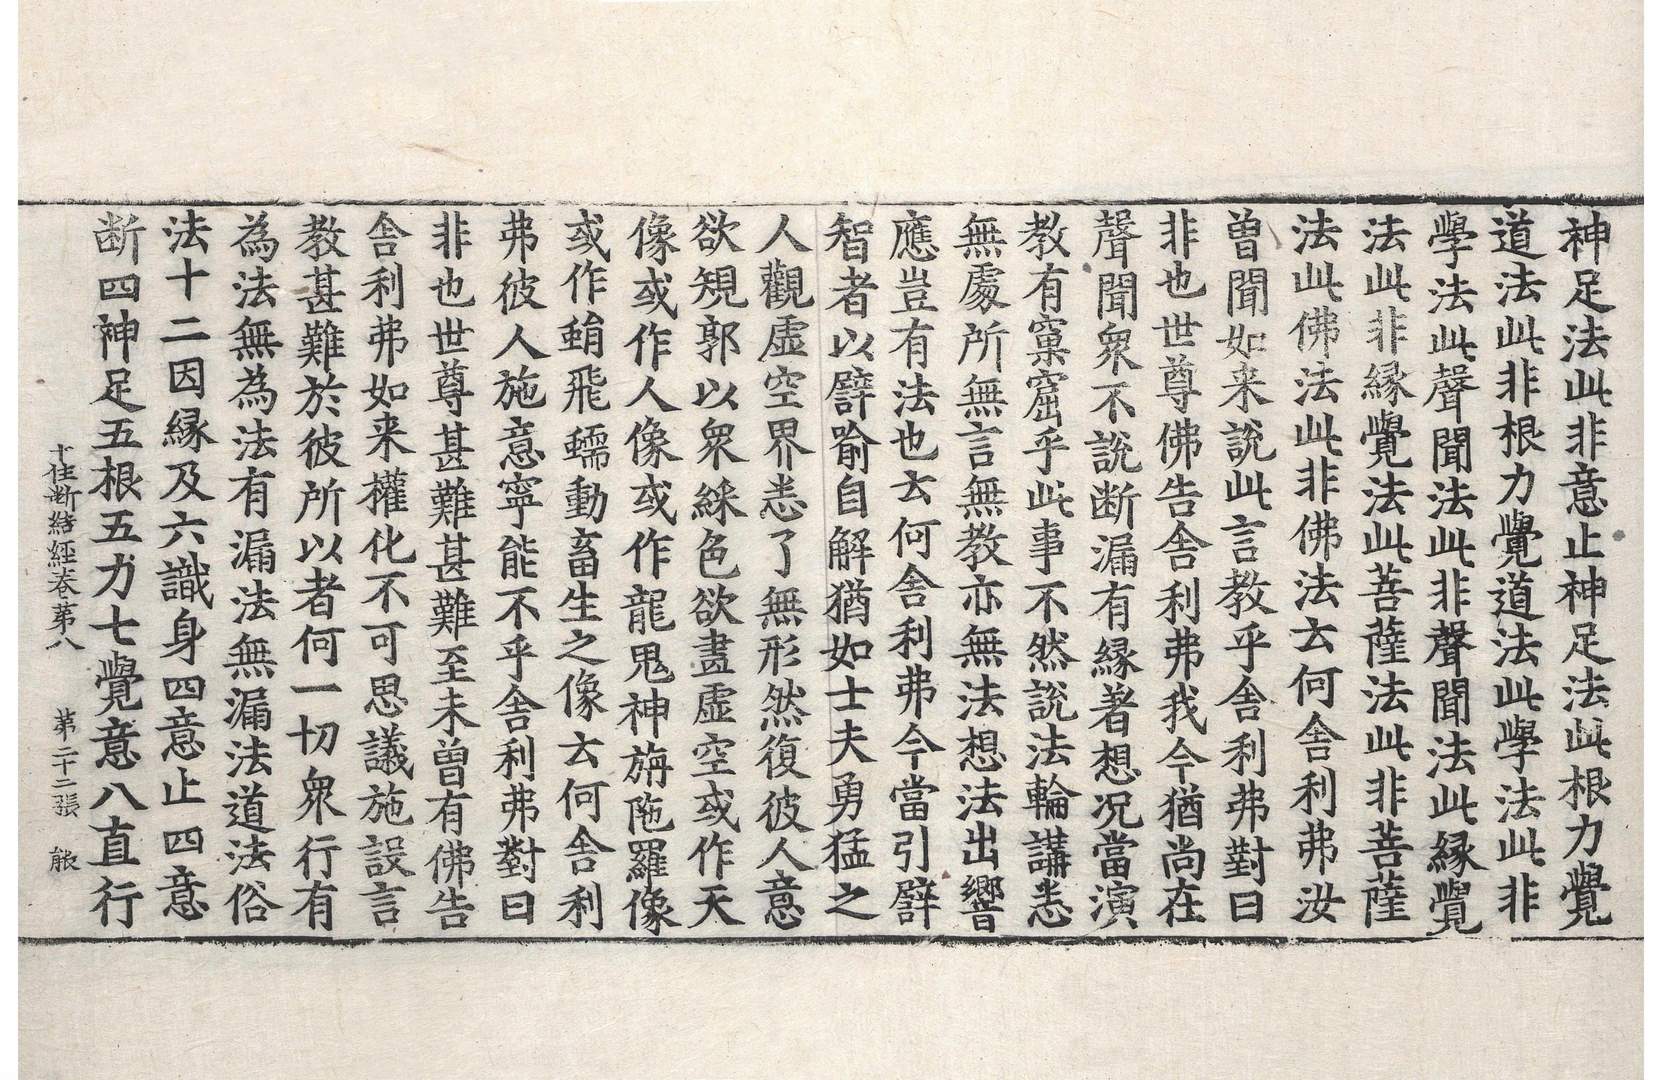 神足法此非意止神足法此根力覺
道法此非根力覺道法此學法此非
學法此聲聞法此非聲聞法此縁覺
法此非縁覺法此菩薩法此非菩薩
法此佛法此非佛法云何舎利弗汝
曽聞如来說此言教乎舎利弗對曰
非也世尊佛告舎利弗我今猶尚在
聲聞衆不說断漏有縁著想况當演
教有窠窟乎此事不然說法輪講恚
無處所無言無教亦無法想法出響
應豈有法也云何舎利弗今當引譬
智者以譬喻自解猶如士夫勇猛之
人觀虚空界恚了無形然復彼人意
欲規郭以衆綵色欲畫虚空或作天
像或作人像或作龍鬼神旃陁羅像
或作蜎飛蠕動畜生之像云何舎利
弗彼人施意寧能不乎舎利弗對曰
非也世尊甚難甚難至未曽有佛告
舎利弗如来權化不可思議施設言
教甚難於彼所以者何一切衆行有
為法無為法有漏法無漏法道法俗
法十二因縁及六識身四意止四意
断四神足五根五力七覺意八直行
十住断結經卷苐八　苐二十二張　能